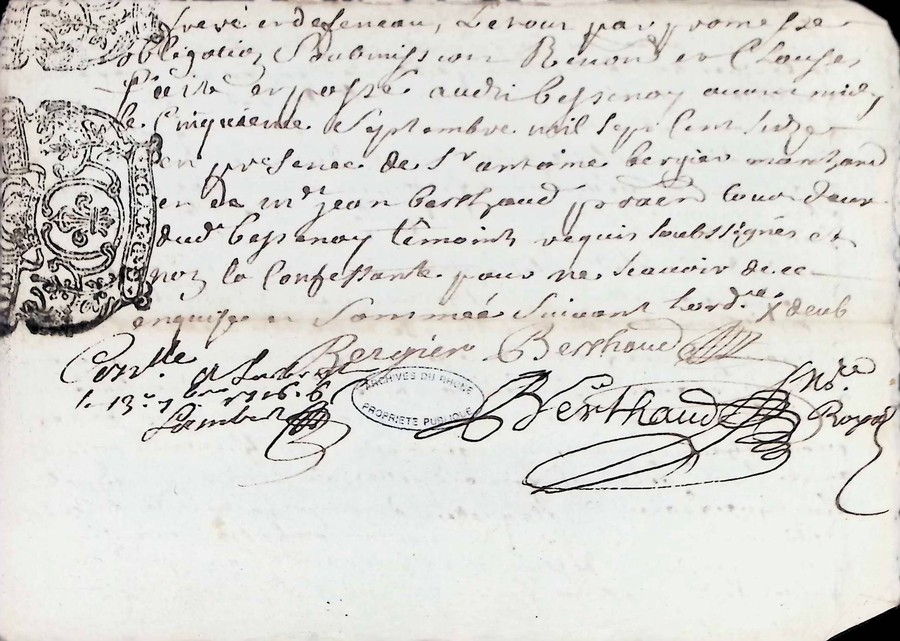 et de feneau, Le tout par promesse
obligation Soubmission Renon et Clauses
faict et passé audit bessenay avant midy
le Cinquieme Septembre mil sept Cent seize
en presence de Sr antoine bergier marchand
et de Mr jean berthaud praen tous deux
dudt bessenay têmoins requis soubssignés et
non la Confessante pour ne scavoir de ce
enquise et Sommeé Suivant Lord.ce X deub
Bergier Berthaud
Con.lle
le 13.e 7bre 1716
Lambert
ARCHIVES DU RHÔNE
PROPRIETE PUBLIQUE
Berthaud
No.re
Royal